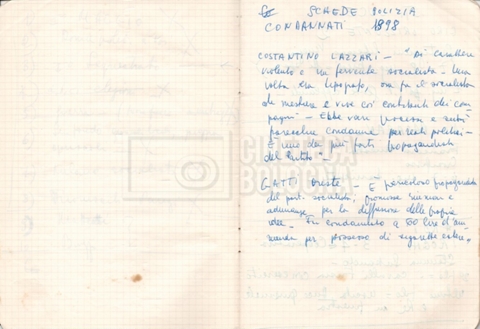 SCHEDE POLIZIA
CONDANNATI 1898
COSTANTINO LAZZARI - "Di carattere
violento è un fervente socialista. Una
volta era tipografo, ora fa il socialista
di mestiere e vive coi contributi dei com-
pagni" - Ebbe vari processi e subì
parecchie condanne per reati politici -
È uno dei più forti propagandisti
del Partito" -
GATTI Oreste - È pericoloso propagandista
del part. socialista, promuove riunioni e
adunanze per la diffusione delle proprie
idee. Fu condannato a 50 lire d'am-
menda per possesso di sigarette estere.
CINETECA
BOLOGNA